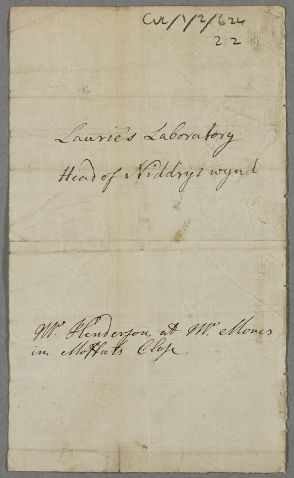 Cul/1/2/624
2:2
Laurie's Laboratory
Head of Niddrys wynd
Mr. Henderson at Mr. Moves
in Moffats Close